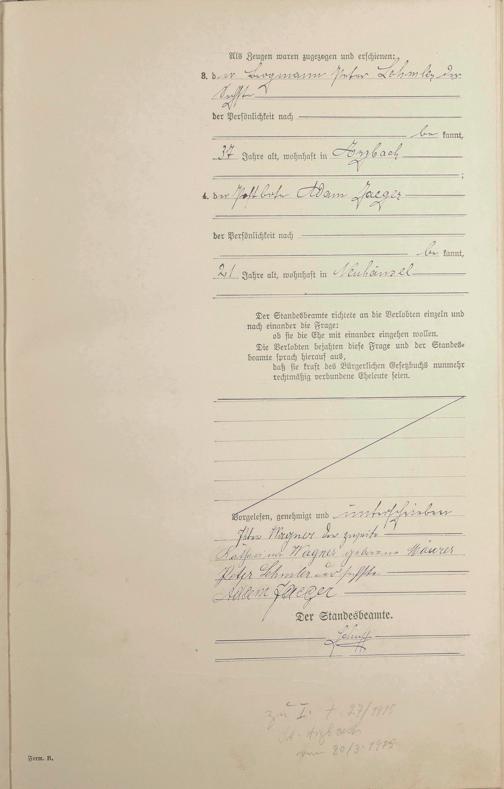 Als Zeugen waren zugezogen und erschienen:
3. der Bergmann Peter Lehmler der
sechste
der Persönlichkeit nach
be kannt,
37 Jahre alt, wohnhaft in Arzbach
;
4. der Postbote Adam Jaeger
der Persönlichkeit nach
be kannt,
21 Jahre alt, wohnhaft in Neuhäusel
Der Standesbeamte richtete an die Verlobten einzeln und
nach einander die Frage:
ob sie die Ehe mit einander eingehen wollen.
Die Verlobten bejahten diese Frage und der Standes-
beamte sprach hierauf aus,
daß sie kraft des Bürgerlichen Gesetzbuchs nunmehr
rechtmäßig verbundene Eheleute seien.
Vorgelesen, genehmigt und unterschrieben
Peter Wagner der zweite
Wagner geborene Maurer
Peter Lehmler der sechste
Adam Jaeger
Der Standesbeamte.
zu I. † 27/19
Arzbach
vom 20/3.
Form. B.